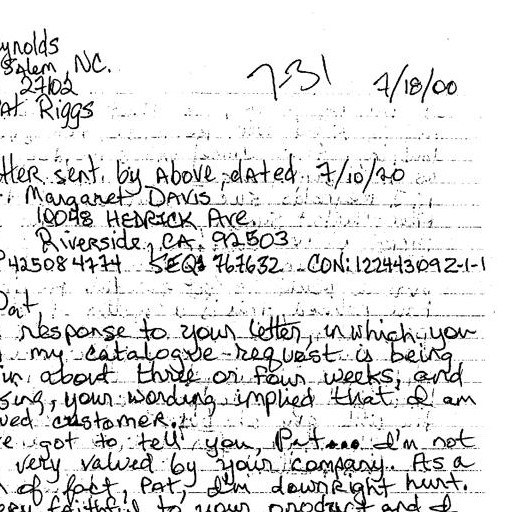 ynolds
Salem, NC.
27102
7-31 7/18/00
at Riggs
tter sent by Above, dated 7/10/20
Margaret Davis
10048 HEDRICK Ave.
Riverside, CA. 92503
425084774 SEQ# 767632 CON: 122443092-1-1
Pat,
response to your letter, in which you
my catalogue request is being
in about three or four weeks, and
sing, your wording implied that I am
ved customer.
e got to tell you, Pat... I'm not
very valued by your company. As a
of fact, Pat, I'm downright hurt.
ery faithful to your product and I